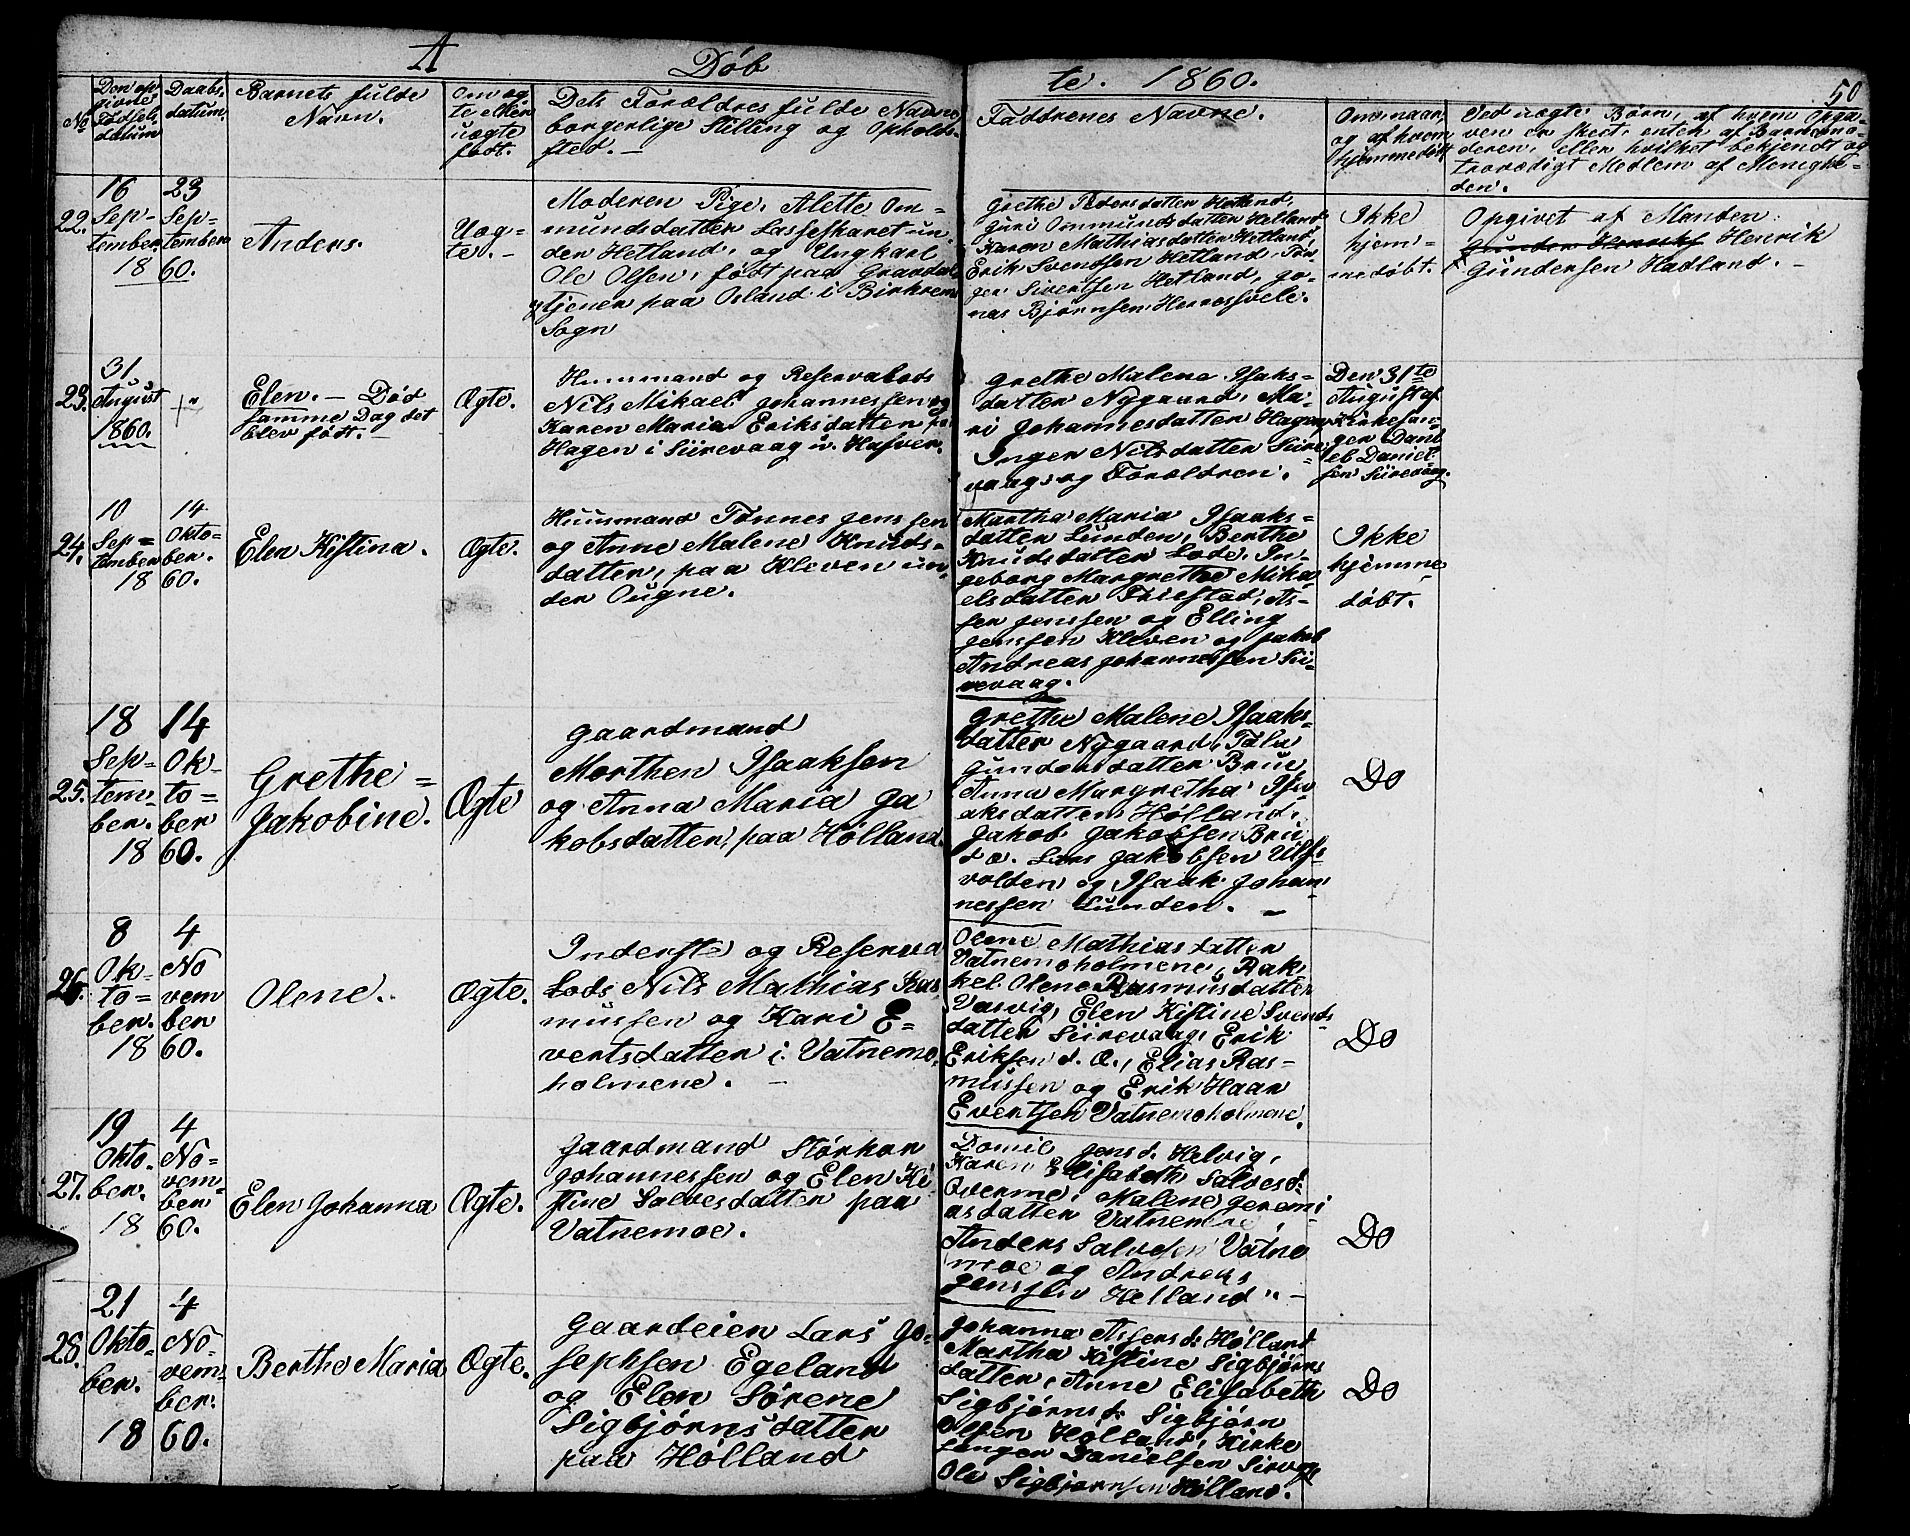 A
Døb
te. 1860.
50
No
Den op
givne
Fødsels
datum
Daabs-
datum
Barnets fulde
Navn.
Om æg
te eller
uægte
født.
Dets Forældres fulde Navne
borgerlige Stilling og Opholds-
sted. —
Faddrenes Navne.
Om, naar,
og af hvem
hjemmedøbt
Ved uægte Børn, af hvem Opga-
ven er skeet, enten af Barnemo-
deren, eller hvilket bekjendt og
troværdigt Medlem af Menighe-
den.
22.
16
Sep-
tember
18
23
Sep-
tember
60.
Anders.
Uæg-
te. -
Moderen Pige, Alette Om-
mundsdatter Lasseskaret un-
der Hetland, og Ungkarl
Ole Olsen, født paa Gravdal
tjener paa Osland i Birkrem
Sogn
Grethe Pedersdatter Hetland,
Guri Ommundsdatter Helland
Karen Mathiasdatter Hetland,
Erik Svendsen Hetland, Tør
ger Sivertsen Hetland, Jo-
nas Bjørnsen Herressvele.
Ikke
hjem-
medøbt.
Opgivet af Manden
Gunder Henriks Henrik
Gundersen Hadland. -
23.
31
August
1860.
+"
Elen. - Død
samme Dag det
blev født. -
Ægte.
Huusmand og Reservelods
Nils Mikael Johannessen og
Karen Maria Eriksdatter paa
Hagen i Siirevaag v. Hafver.
Grethe Malene Isaks-
datter Nygaard, Ma-
ri Johannesdatter Hagen,
Inger Nilsdatter Siire-
vaag, og Forældren.
Den 31te
August af
Kirkesan-
ger Dani
el Daniel-
sen Siirevaag.
24.
10
Sep-
tember
18
14
Okto-
ber.
60.
Elen Kistina.
Ægte.
Huusmand Tønnes Jenssen
og Anne Malene Knuds-
datter, paa Kleven un-
der Ougne.
Martha Maria Isaaks-
datter Lunden, Berthe
Knudsdatter Lode, In-
geborg Margrethe Mika-
elsdatter Thiestad, As-
ser Jenssen og Elling
Jenssen Kleven og Jakob
Andreas Johannessen Sii-
revaag.
Ikke
hjemme-
døbt.
25.
18
Sep-
tem-
ber.
18
14
Ok-
to-
ber
60.
Grethe-
Jakobine.
Ægte
Gaardmand
Morthen Isaaksen
og Anna Maria Ja
kobsdatter, paa Hølland.
Grethe Malene Isaaks-
datter Nygaard, Talu
Gundersdatter Brue
Anna Margretha Isa-
aksdatter Hølland,
Jakob Jakobsen Bru
d æ. Lars Jakobsen Ulfs-
volden og Isaak Johan-
nessen Lunden. -
Do
26.
8
Ok-
to-
ber.
18
4
No
vem
ber
60.
Olene.
Ægte.
Inderste og Reserva
Lods Nils Mathias Ras
mussen og Kari E-
vertsdatter i Vatnemo-
holmene. -
Olene Mathiasdatter
Vatnemoholmene, Rak
kel Olene Rasmusdatter
Vasvig, Elen Kistine Svends-
datter Siirevaag, Erik
Eriksen d. Æ., Elias Ras-
mussen og Erik Haar
Evertsen Vatnemoholmene.
Do
27.
19
Okto-
ber.
18
4
No-
vem-
ber
60.
Elen Johanna
Ægte.
Gaardmand Størkor
Johannessen og Elen Ki-
stine Salvesdatter paa
Vatnemoe.
Jensd. Helvig,
Karen Elisabeth Salvesd.
Qverme, Malene Jeremi-
asdatter Vatnemoe,
Anders Salvesen Vatne
moe og Andreas
Jenssen Helland " -
Do
28.
21
Okto-
ber.
18
4
No-
vem-
ber.
60.
Berthe Maria
Ægte.
Gaardeien Lars Jo-
sephsen Egeland
og Elen Sørene
Sigbjørnsdatter
paa Hølland
Johanna Assersd. Hølland
Martha Kistine Sigbjørns
datter, Anne Elisabeth
Sigbjørnsd. Sigbjørn
Olsen Hølland, Kirke
sanger Danielsen Sirevg
Ole Sigbjørnsen Hølland.
Do